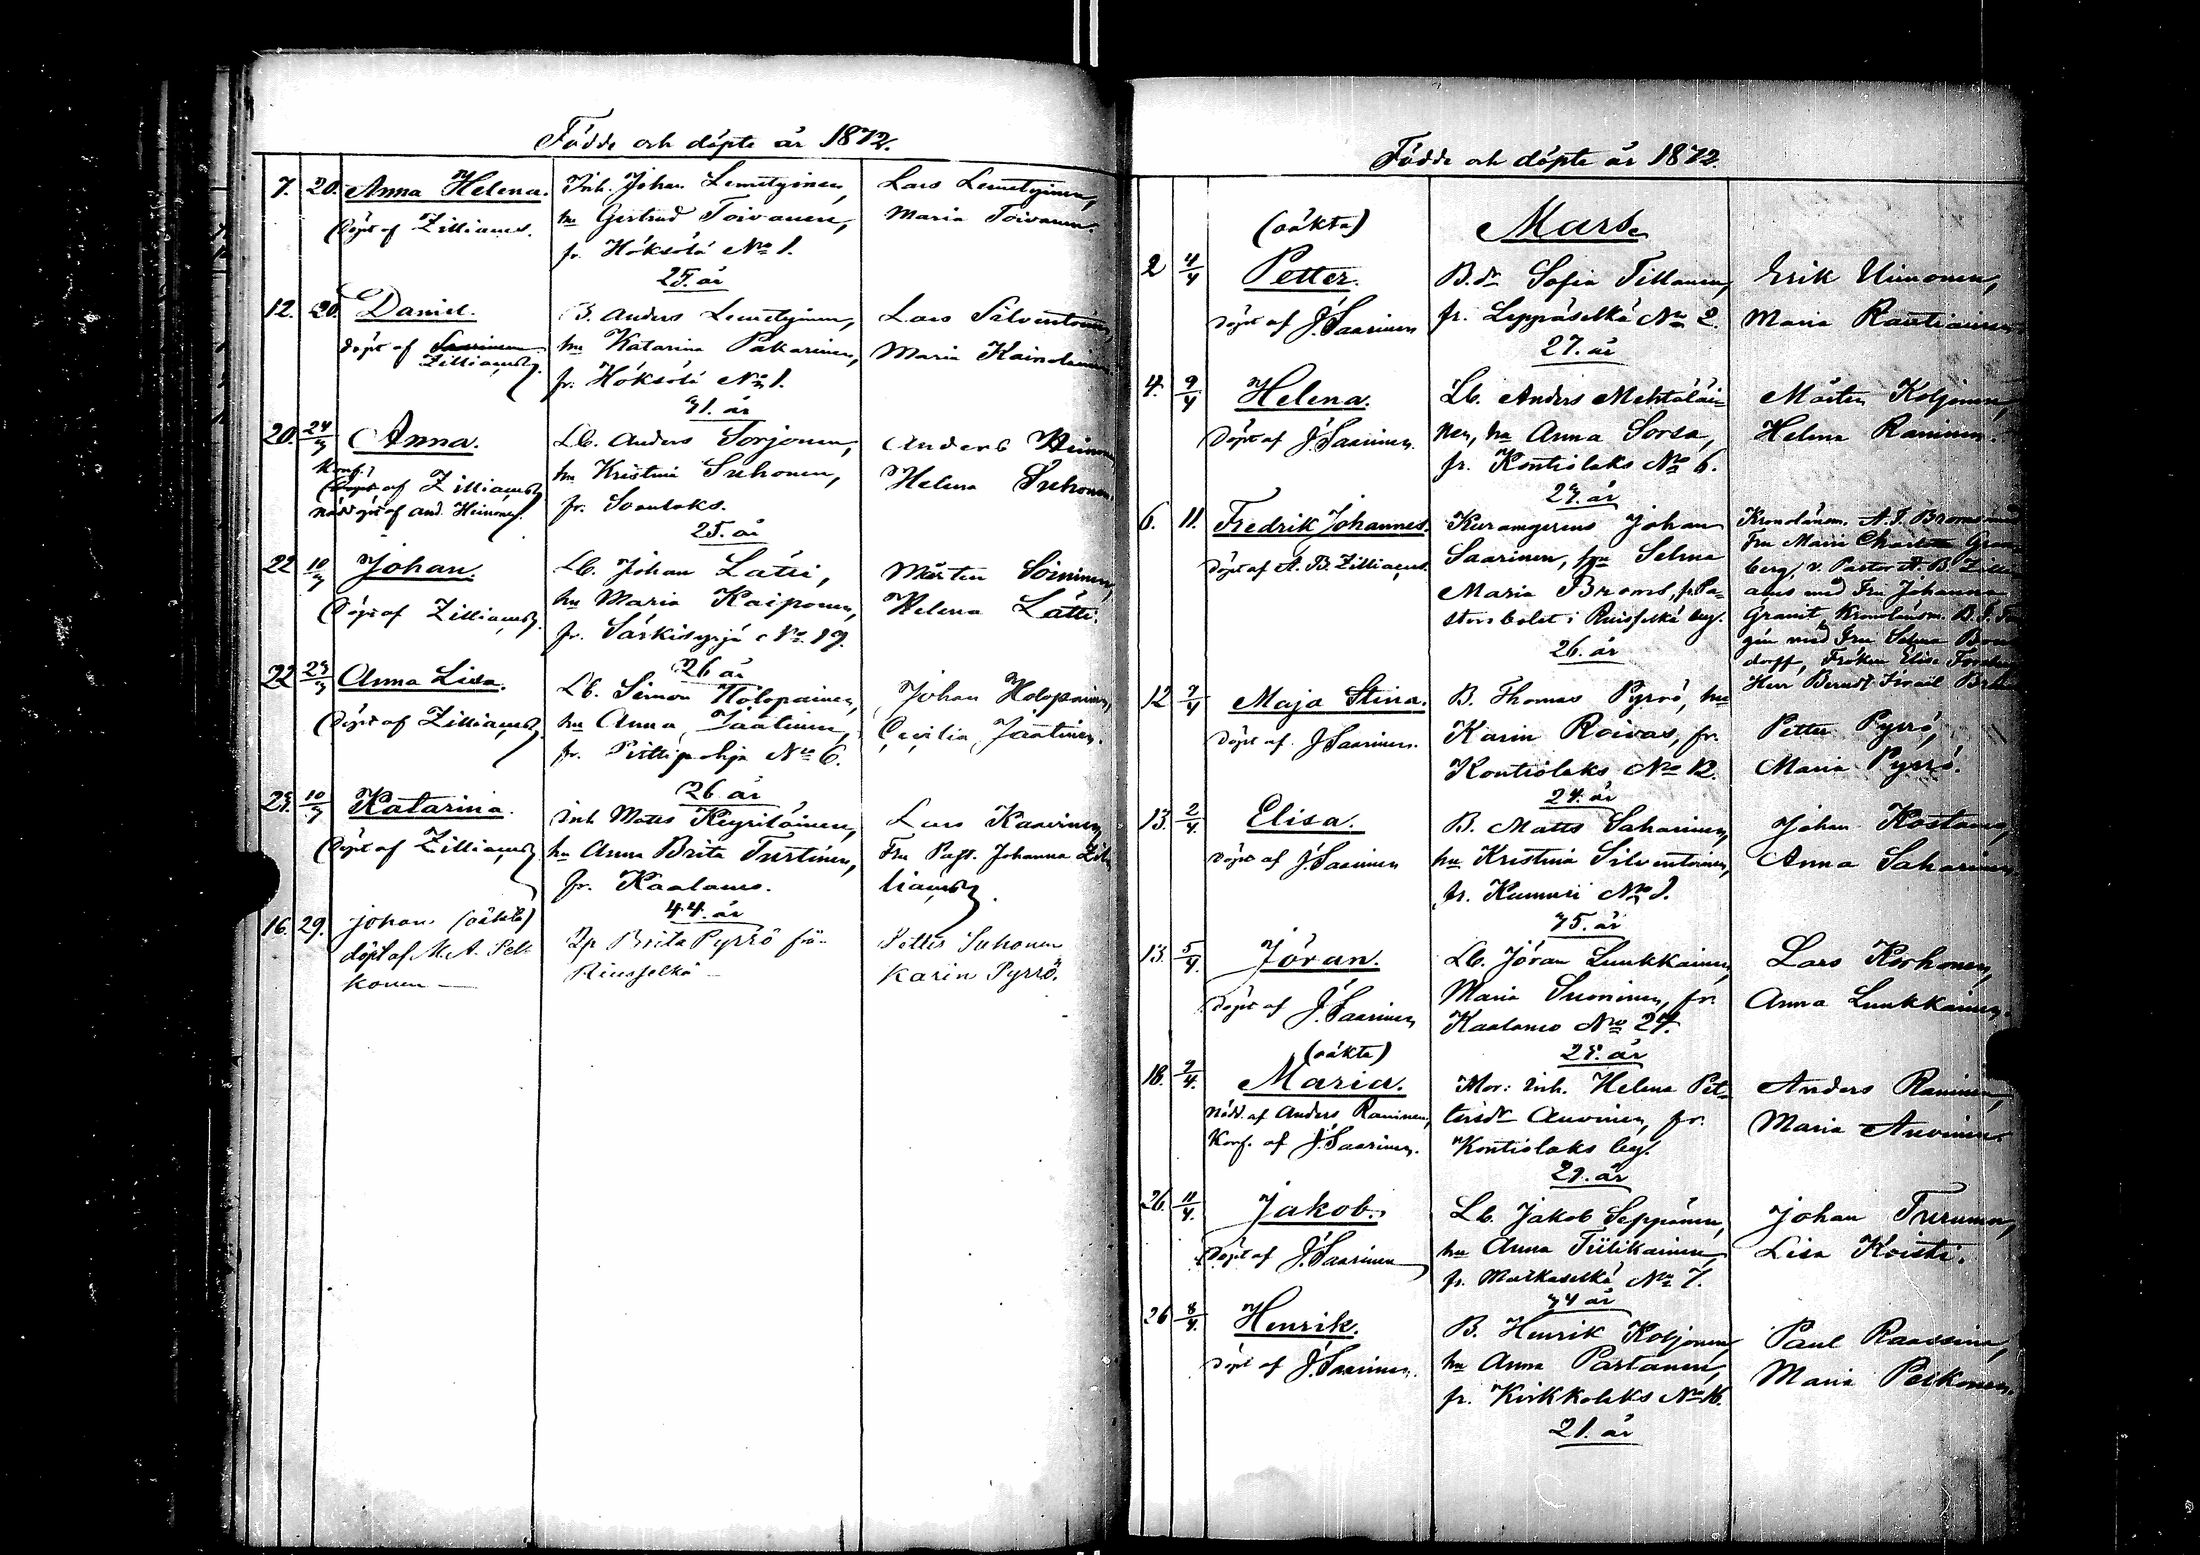 Födde och döpte år 1872.
7. 20. Anna Helena. Inh. Johan Lemetyinen, Lars Lemetyinen,
Döpt af Zilliacus. hu Gertrud Toivanen, Maria Toivanen.
fr. Höksölä No 1.
25. år
12. 20. Daniel. B. Anders Lemetyinen, Lars Silventoinen,
döpt af Saarinen hu Katarina Pakarinen, Maria Kainulainen
Zilliacus. fr. Höksölä No 1.
31. år
20. 24/3 Anna. Lb. Anders Sorjonen, Anders Heinonen
Konf. af Zilliacus hu Kristina Suhonen, Helena Suhonen.
nöddöpt af And. Heinonen. fr. Soanlaks.
25. år
22 10/3 Johan. Lb. Johan Lätti, Mårten Soininen,
Döpt af Zilliacus. hu Maria Kaiponen, Helena Lätti.
fr. Särkisyrjä No 17.
26 år
22 23/3 Anna Lisa. Lb. Simon Holopainen, Johan Holopainen,
Döpt af Zilliacus. hu Anna Jaatinen, Cecilia Jaatinen.
fr. Pirttipohja No 6.
26 år
29. 10/3 Katarina. Inh Matts Kyyriläinen, Lars Kaarinen
Döpt af Zilliacus hu Anna Brita Turtinen, Fru Past. Johanna Zil-
fr. Kaalamo. liacus
44. år
16. 29. Johan (oäkta) Brita Pyrrö frå- Petter Suhonen
döpt af M. A. Pel- Ruisselkä — Karin Pyrrö.
konen —
Födde och döpte år 1872.
(oäkta) Mars.
2 4/4 Petter. B.dr Sofia Tillanen, Erik Uimonen,
Döpt af J. Saarinen fr. Leppäselkä No 2. Maria Rautiainen
27. år
4. 9/4 Helena. Lb. Anders Mehtäläi- Mårten Koljonen,
Döpt af J. Saarinen. nen, hu Anna Sorsa, Helena Raninen.
fr. Kontiolaks No 6.
27. år
6. 11. Fredrik Johannes. Kuramgerens Johan Kronolänsm. A. F. Broms med
Döpt af A. B. Zilliacus. Saarinen, fru Selma Fru Maria Charlotta Gran-
Maria Broms, fr. Pa- berg, v. Pastor A. B. Zilli-
storsbolet i Ruisselkä by. acus med Fru Johanna
26. år Granit, Kronolänsm.
gin med Fru Selma
dorff, Fröken Elise
Herr Berndt
12 7/4 Maja Stina. B. Thomas Pyrrö, hu
Döpt af J Saarinen. Karin Roivas, fr. Petter Pyrrö,
Kontiolaks No 12. Maria Pyrrö.
24. år
13. 2/4. Elisa. B. Matts Saharinen, Johan Kostamo,
Döpt af J. Saarinen hu Kristina Silventoinen, Anna Saharinen
fr. Kumuri No 1.
35. år
13. 5/4. Jöran. Lb. Jöran Luukkainen, Lars Korhonen,
Döpt af J. Saarinen Maria Suminen, fr. Anna Luukkainen.
Kaalamo No 27.
(oäkta) 25. år
18. 9/4. Maria. Mor: Inh. Helena Pet- Anders Raninen,
Nödd. af Anders Raninen, tersdr Auvinen, fr. Maria Auvinen.
Konf. af J. Saarinen. Kontiolaks by.
29. år
26. 11/4. Jakob. Lb. Jakob Seppänen, Johan Turunen,
Döpt af J. Saarinen hu Anna Tiilikainen, Lisa Koisti.
fr. Matkaselkä No 7.
34 år
26 8/4. Henrik. B. Henrik Koljonen, Paul Raassina,
Döpt af J. Saarinen. hu Anna Partanen, Maria Peikonen.
fr. Kirkkolaks No 16.
21. år